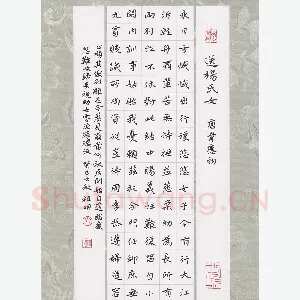 送楊氏女 唐 韋應物
永日方慼慼出行復悠悠女子今有行大江
泝輕舟爾輩苦無恃撫念益慈柔幼為長所育
兩別泣不休對此結中腸義往難復留自小闕
內訓事姑貽我憂賴茲託令門任卹庶無
尤貧儉誠所尚資從豈待周孝恭遵婦道容
止順其猷別離在今晨見爾當何秋居閑始自遣臨感
忽難收歸來視幼女零淚緣纓流